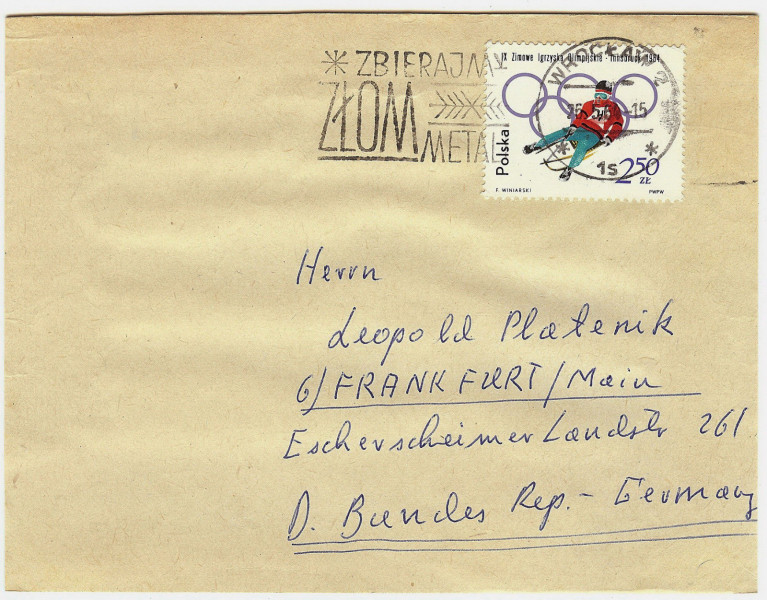 ZBIERAJMY
ZŁOM
METALI
IX Zimowe Igrzyska Olimpijskie - Innsbruck 1964
WROCŁAW 2
-15
1s
Polska
2.50
ZŁ
F. WINIARSKI
PWPW
Herrn
Leopold Platenik
6/FRANKFURT/Main
Escherscheimer Landstr 261
D. Bundes Rep.- Germany